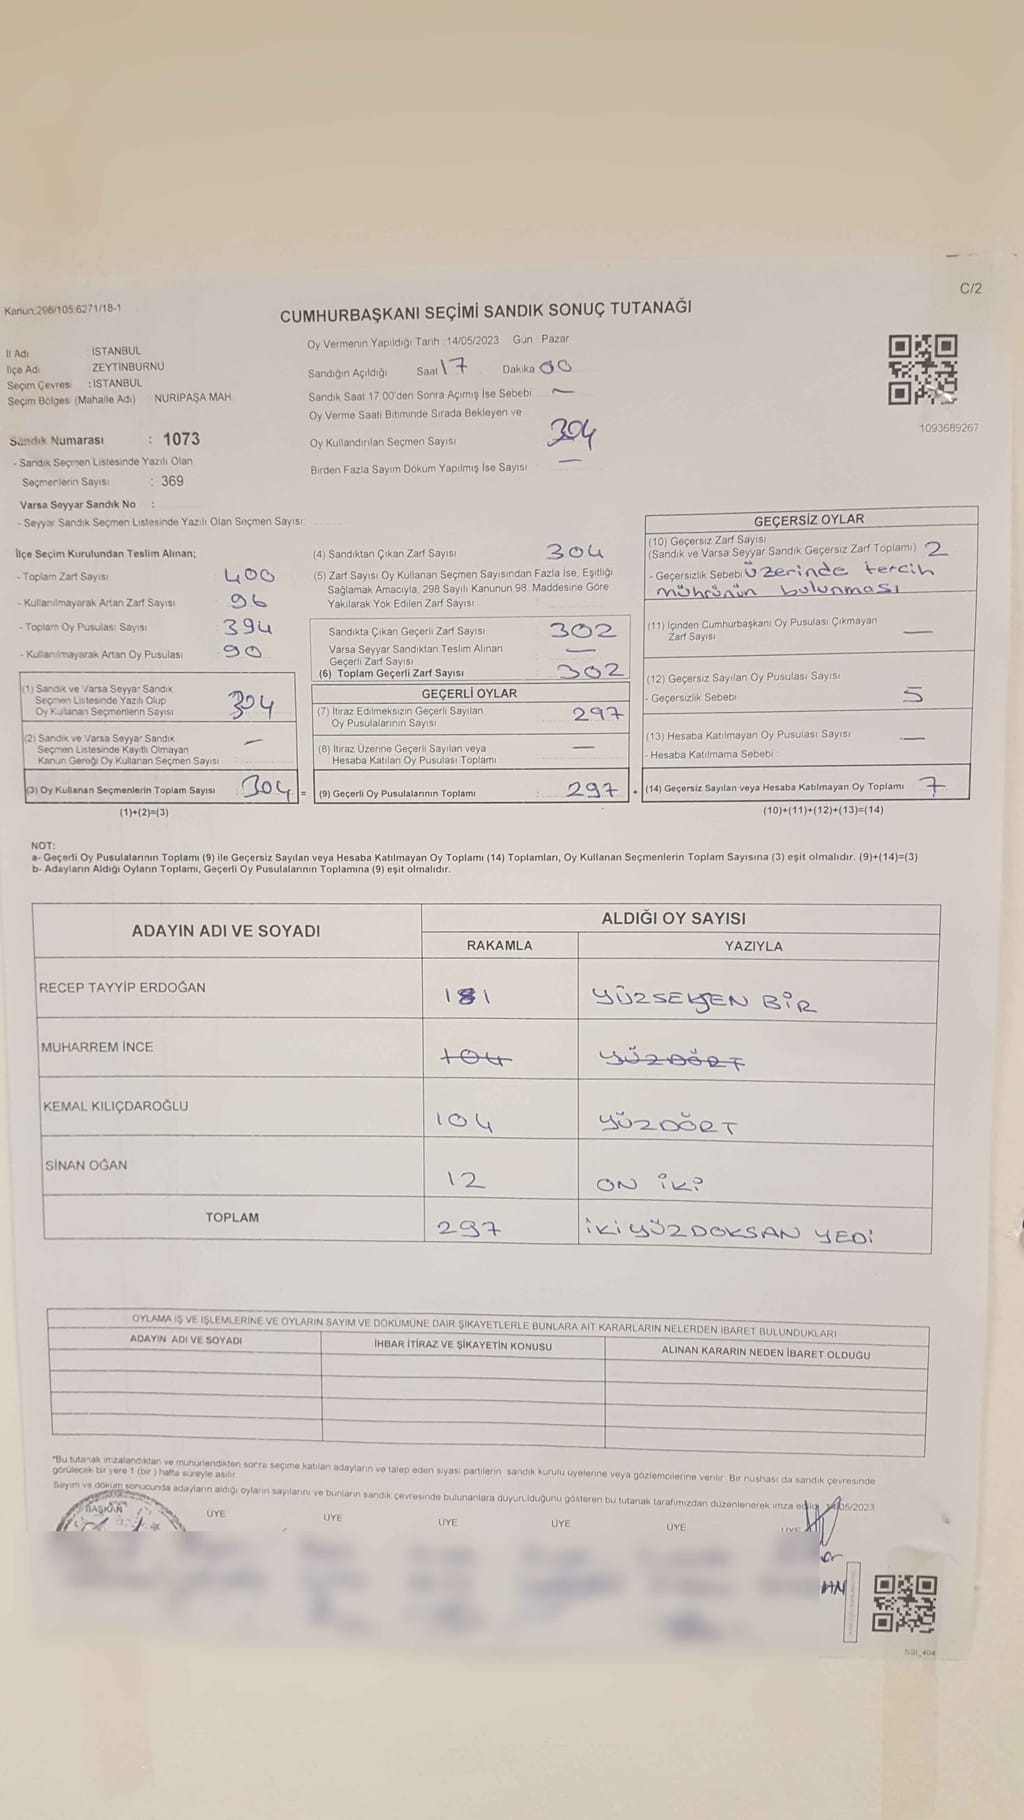 Kanun:298/105:6271/18-1
C/2
CUMHURBAŞKANI SEÇİMİ SANDIK SONUÇ TUTANAĞI
İl Adı İSTANBUL
İlçe Adı ZEYTİNBURNU
Seçim Çevresi : İSTANBUL
Seçim Bölgesi (Mahalle Adı) NURİPAŞA MAH.
Sandık Numarası : 1073
- Sandık Seçmen Listesinde Yazılı Olan
Seçmenlerin Sayısı : 369
Varsa Seyyar Sandık No :
- Seyyar Sandık Seçmen Listesinde Yazılı Olan Seçmen Sayısı:
Oy Vermenin Yapıldığı Tarih :14/05/2023 Gün : Pazar
Sandığın Açıldığı Saat 17 Dakika 00
Sandık Saat 17:00'den Sonra Açımış İse Sebebi —
Oy Verme Saati Bitiminde Sırada Bekleyen ve
Oy Kullandırılan Seçmen Sayısı 304
Birden Fazla Sayım Döküm Yapılmış İse Sayısı —
1093689267
İlçe Seçim Kurulundan Teslim Alınan;
- Toplam Zarf Sayısı 400
- Kullanılmayarak Artan Zarf Sayısı 96
- Toplam Oy Pusulası Sayısı 394
- Kullanılmayarak Artan Oy Pusulası 90
(1) Sandık ve Varsa Seyyar Sandık
Seçmen Listesinde Yazılı Olup
Oy Kullanan Seçmenlerin Sayısı 304
(2) Sandık ve Varsa Seyyar Sandık
Seçmen Listesinde Kayıtlı Olmayan
Kanun Gereği Oy Kullanan Seçmen Sayısı —
(3) Oy Kullanan Seçmenlerin Toplam Sayısı : 304 =
(1)+(2)=(3)
(4) Sandıktan Çıkan Zarf Sayısı 304
(5) Zarf Sayısı Oy Kullanan Seçmen Sayısından Fazla İse, Eşitliği
Sağlamak Amacıyla, 298 Sayılı Kanunun 98. Maddesine Göre
Yakılarak Yok Edilen Zarf Sayısı
Sandıkta Çıkan Geçerli Zarf Sayısı 302
Varsa Seyyar Sandıktan Teslim Alınan
Geçerli Zarf Sayısı —
(6) Toplam Geçerli Zarf Sayısı 302
GEÇERLİ OYLAR
(7) İtiraz Edilmeksizin Geçerli Sayılan
Oy Pusulalarının Sayısı 297
(8) İtiraz Üzerine Geçerli Sayılan veya
Hesaba Katılan Oy Pusulası Toplamı —
(9) Geçerli Oy Pusulalarının Toplamı : 297 +
GEÇERSİZ OYLAR
(10) Geçersiz Zarf Sayısı
(Sandık ve Varsa Seyyar Sandık Geçersiz Zarf Toplamı) 2
- Geçersizlik Sebebi Üzerinde tercih
mührünün bulunması
(11) İçinden Cumhurbaşkanı Oy Pusulası Çıkmayan
Zarf Sayısı —
(12) Geçersiz Sayılan Oy Pusulası Sayısı
- Geçersizlik Sebebi 5
(13) Hesaba Katılmayan Oy Pusulası Sayısı —
- Hesaba Katılmama Sebebi
(14) Geçersiz Sayılan veya Hesaba Katılmayan Oy Toplamı 7
(10)+(11)+(12)+(13)=(14)
NOT:
a- Geçerli Oy Pusulalarının Toplamı (9) ile Geçersiz Sayılan veya Hesaba Katılmayan Oy Toplamı (14) Toplamları, Oy Kullanan Seçmenlerin Toplam Sayısına (3) eşit olmalıdır. (9)+(14)=(3)
b- Adayların Aldığı Oyların Toplamı, Geçerli Oy Pusulalarının Toplamına (9) eşit olmalıdır.
ADAYIN ADI VE SOYADI ALDIĞI OY SAYISI
RAKAMLA YAZIYLA
RECEP TAYYİP ERDOĞAN 181 YÜZSEKSEN BİR
MUHARREM İNCE 104 YÜZDÖRT
KEMAL KILIÇDAROĞLU 104 YÜZDÖRT
SİNAN OĞAN 12 ON İKİ
TOPLAM 297 İKİYÜZDOKSAN YEDİ
OYLAMA İŞ VE İŞLEMLERİNE VE OYLARIN SAYIM VE DÖKÜMÜNE DAİR ŞİKAYETLERLE BUNLARA AİT KARARLARIN NELERDEN İBARET BULUNDUKLARI
ADAYIN ADI VE SOYADI İHBAR İTİRAZ VE ŞİKAYETİN KONUSU ALINAN KARARIN NEDEN İBARET OLDUĞU
*Bu tutanak imzalandıktan ve mühürlendikten sonra seçime katılan adayların ve talep eden siyasi partilerin sandık kurulu üyelerine veya gözlemcilerine verilir. Bir nüshası da sandık çevresinde
görülecek bir yere 1 (bir) hafta süreyle asılır.
Sayım ve döküm sonucunda adayların aldığı oyların sayılarını ve bunların sandık çevresinde bulunanlara duyurulduğunu gösteren bu tutanak tarafımızdan düzenlenerek imza edildi. 14/05/2023
BAŞKAN ÜYE ÜYE ÜYE ÜYE ÜYE ÜYE